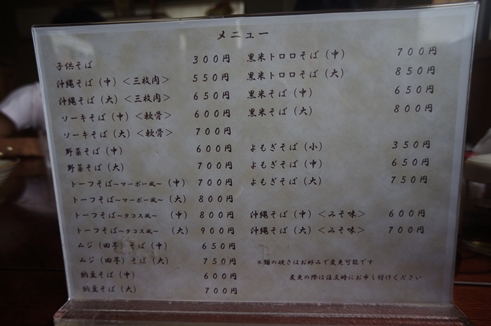 メニュー
子供そば 300円
沖縄そば（中）＜三枚肉＞ 550円
沖縄そば（大）＜三枚肉＞ 650円
ソーキそば（中）＜軟骨＞ 600円
ソーキそば（大）＜軟骨＞ 700円
野菜そば（中） 600円
野菜そば（大） 700円
トーフそば～マーボー風～（中） 700円
トーフそば～マーボー風～（大） 800円
トーフそば～タコス風～（中） 800円
トーフそば～タコス風～（大） 900円
ムジ（田芋）そば（中） 650円
ムジ（田芋）そば（大） 750円
納豆そば（中） 600円
納豆そば（大） 700円
黒米トロロそば（中） 700円
黒米トロロそば（大） 850円
黒米そば（中） 650円
黒米そば（大） 800円
よもぎそば（小） 350円
よもぎそば（中） 650円
よもぎそば（大） 750円
沖縄そば（中）＜みそ味＞ 600円
沖縄そば（大）＜みそ味＞ 700円
※麺の焼きはお好みで変更可能です
変更の際は注文時にお申し付けください